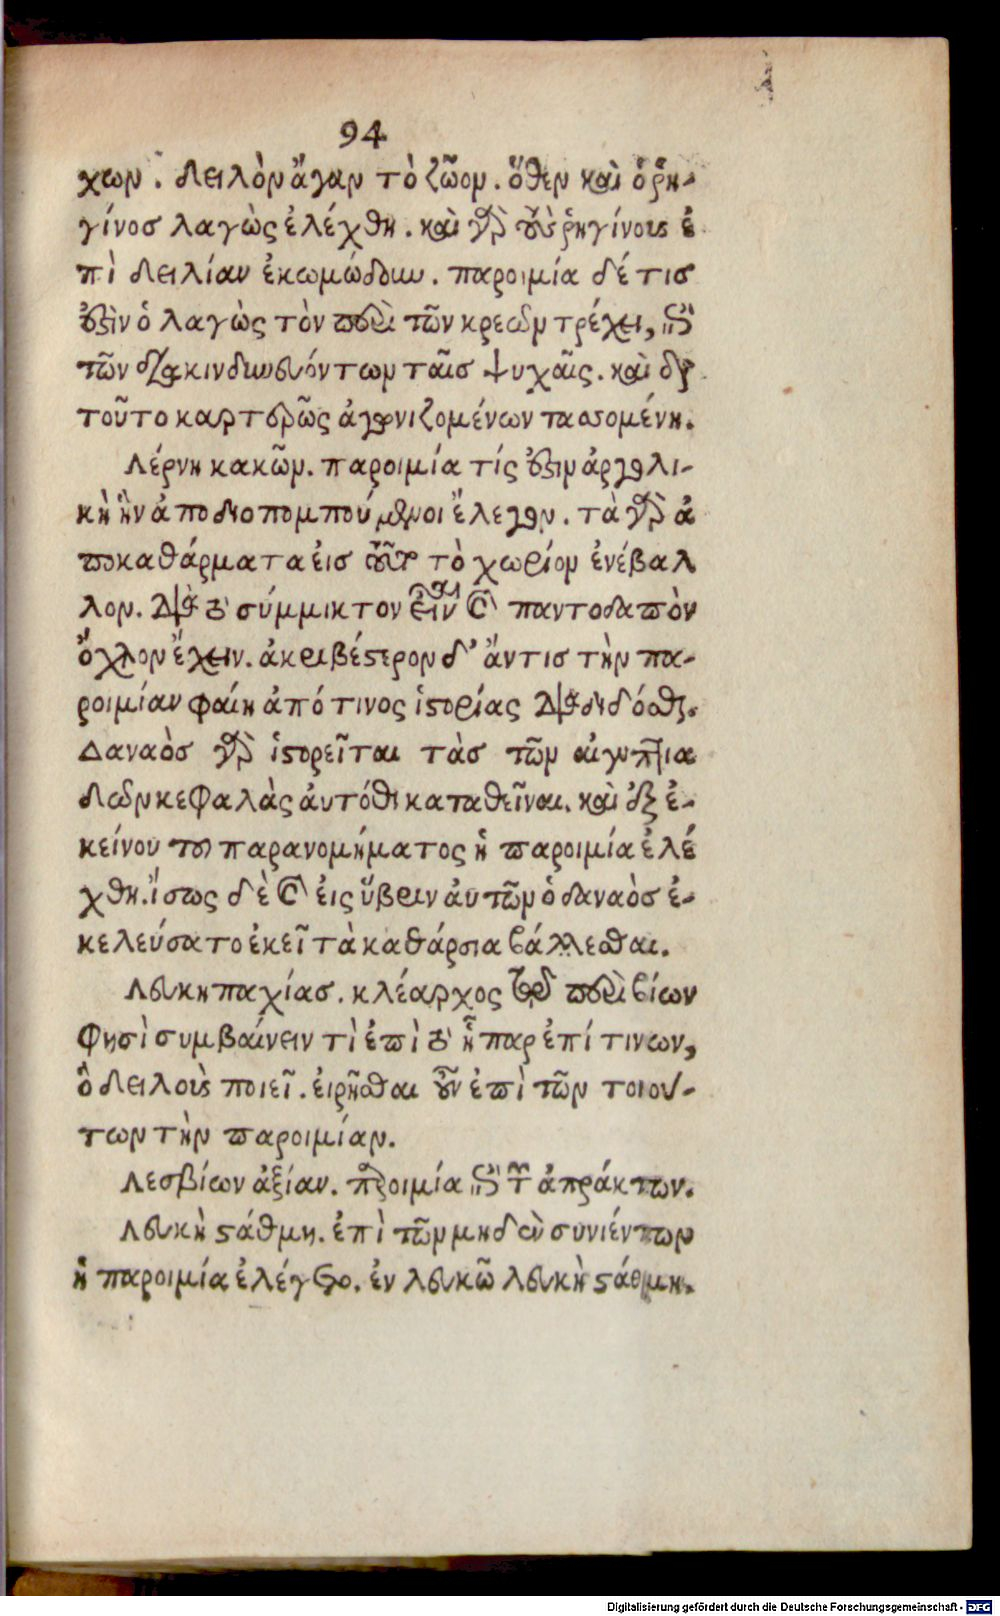 94
χων. δειλὸν ἄγαν τὸ ζῶον. ὅθεν καὶ ὁ ῥη-
γίνοσ λαγὼς ἐλέχθη. καὶ γὰρ τοὺς ῥηγίνους ἐ
πὶ δειλίαν ἐκωμώδουν. παροιμία δέ τισ
ἐστὶν ὁ λαγὼς τὸν περὶ τῶν κρεῶν τρέχει, ἐπὶ
τῶν διακινδυνευόντων ταῖσ ψυχαῖς. καὶ διὰ
τοῦτο καρτερῶς ἀγωνιζομένων τασσομένη.
Λέρνη κακῶν. παροιμία τίς ἐστιν ἀργολι-
κὴ ἣν ἀποδιοπομπούμενοι ἔλεγον. τὰ γὰρ ἀ
ποκαθάρματα εἰσ τοῦτο τὸ χωρίον ἐνέβαλ
λον. διὰ τὸ σύμμικτον εἶναι καὶ παντοδαπὸν
ὄχλον ἔχειν. ἀκριβέστερον δ' ἄντισ τὴν πα-
ροιμίαν φαίη ἀπό τινος ἱστορίας διαδεδόσθαι.
Δαναὸσ γὰρ ἱστορεῖται τὰσ τῶν αἰγυπτια
δῶν κεφαλὰς ἀυτόθι καταθεῖναι. καὶ ἐξ ἐ-
κείνου του παρανομήματος ἡ παροιμία ἐλέ
χθη. ἴσως δὲ καὶ εἰς ὕβριν ἀυτῶν ὁ δαναὸσ ἐ-
κελεύσατο ἐκεῖ τὰ καθάρσια βάλλεσθαι.
Λευκηπαχίασ. κλέαρχος ἐν τῶ περὶ βίων
φησὶ συμβαίνειν τὶ ἐπὶ τὸ ἧπαρ ἐπί τινων,
ὃ δειλοὺς ποιεῖ. εἰρῆσθαι οὖν ἐπὶ τῶν τοιού-
των τὴν παροιμίαν.
Λεσβίων ἀξίαν. παροιμία ἐπὶ τῶν ἀπράκτων.
Λευκὴ στάθμη. ἐπὶ τῶν μηδὲν συνιέντων
ἡ παροιμία ἐλέγετο. ἐν λευκῶ λευκὴ στάθμη.
Digitalisierung gefördert durch die Deutsche Forschungsgemeinschaft - DFG